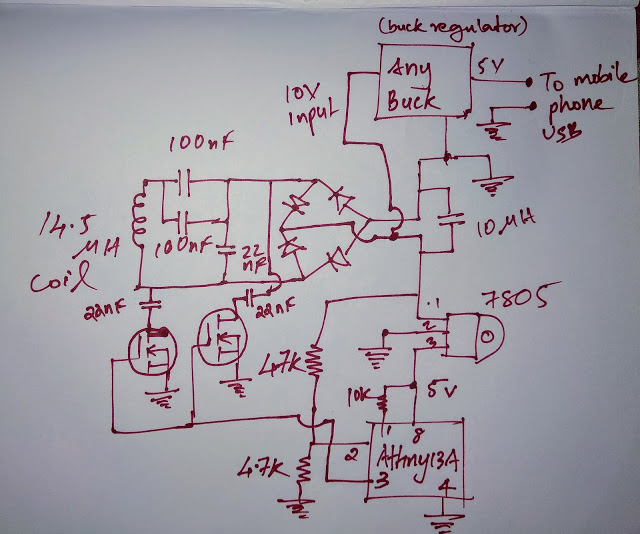 (buck regulator)
Any
Buck
5V
To mobile
phone
USB
10V
input
100nF
100nF
14.5
μH
coil
22
nF
10μH
22nF
22nF
7805
1
2
3
4.7K
10K
5V
1
8
2
Attiny13A
3
4
4.7K